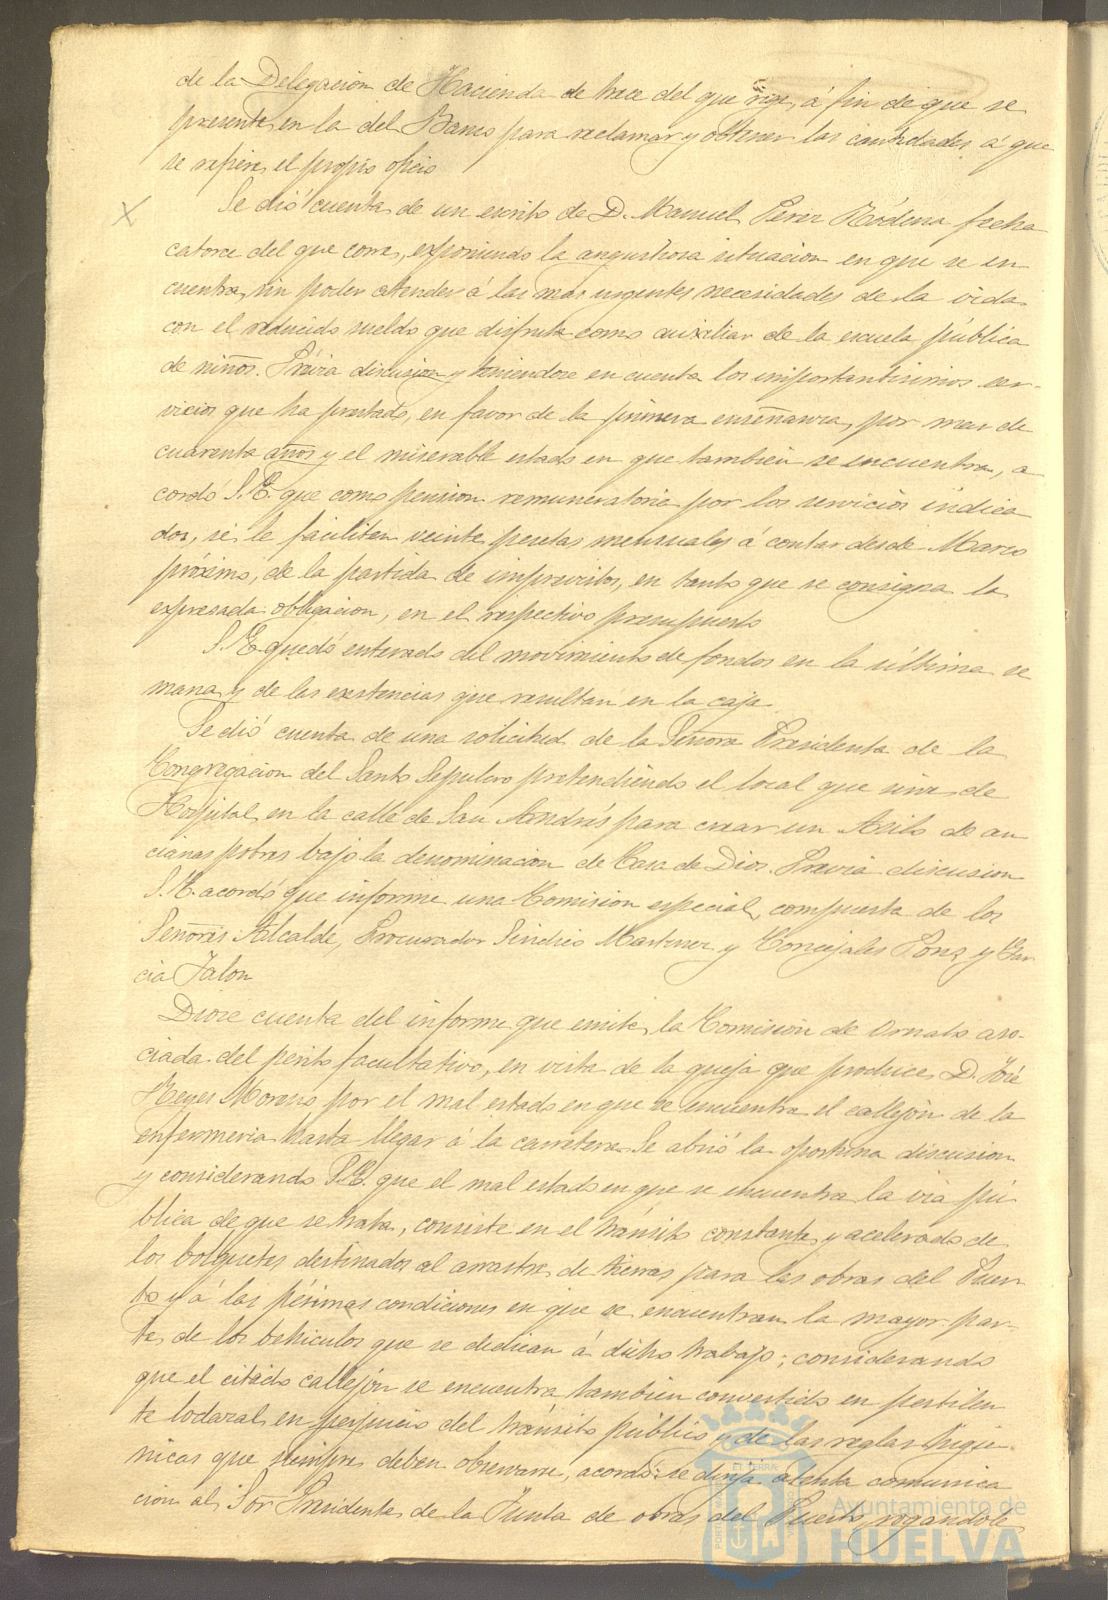 de la Delegacion de Hacienda de trece del que rige, á fin de que se
presente en la del Banco para reclamar y obtener las cantidades á que
se refiere el propio oficio
Se dió cuenta de un escrito de D. Manuel Perez Ródena fecha
catorce del que corre, exponiendo la angustiosa situacion en que se en
cuentra, sin poder atender á las mas urgentes necesidades de la vida
con el reducido sueldo que disfruta como auxiliar de la escuela pública
de niños. Prévia discusion y teniendose en cuenta los importantisimos ser-
vicios que ha prestado, en favor de la primera enseñanza, por mas de
cuarenta años y el miserable estado en que tambien se encuentra, a
cordó S.E. que como pension remuneratoria por los servicios indica
dos, se le faciliten veinte pesetas mensuales á contar desde Marzo
próximo, de la partida de imprevistos, en tanto que se consigna la
expresada obligacion, en el respectivo presupuesto
S.E. quedó enterado del movimiento de fondos en la última se
mana y de las existencias que resultan en la caja.
Se dió cuenta de una solicitud de la Señora Presidenta de la
Congregacion del Santo Sepulcro pretendiendo el local que sirve de
Hospital en la calle de San Andrés para crear un Asilo de an
cianas pobres bajo la denominacion de Casa de Dios. Previa discusion
S.E. acordó que informe una Comision especial, compuesta de los
Señores Alcalde, Procurador Síndico Martinez y Concejales Pons y Gar
cia Jalon
Diose cuenta del informe que emite, la Comision de Ornato aso-
ciada del perito facultativo, en vista de la queja que produce D. José
Reyes Moreno por el mal estado en que se encuentra el callejón de la
enfermeria hasta llegar á la carretera. Se abrió la oportuna discusion
y considerando S.E. que el mal estado en que se encuentra la via pú
blica de que se trata, consiste en el tránsito constante y acelerado de
los bolquetes destinados al arrastre de tierras para las obras del Puer
to y á las pésimas condiciones en que se encuentran la mayor par-
te de los behiculos que se dedican á dicho trabajo; considerando
que el citado callejón se encuentra tambien convertido en pestilen
te lodazal en perjuicio del tránsito público y de las reglas higie-
nicas que siempre deben observarse, acordó: se dirija atenta comunica
cion al Sor Presidente de la Junta de obras del Puerto, rogandole
Ayuntamiento de
HUELVA